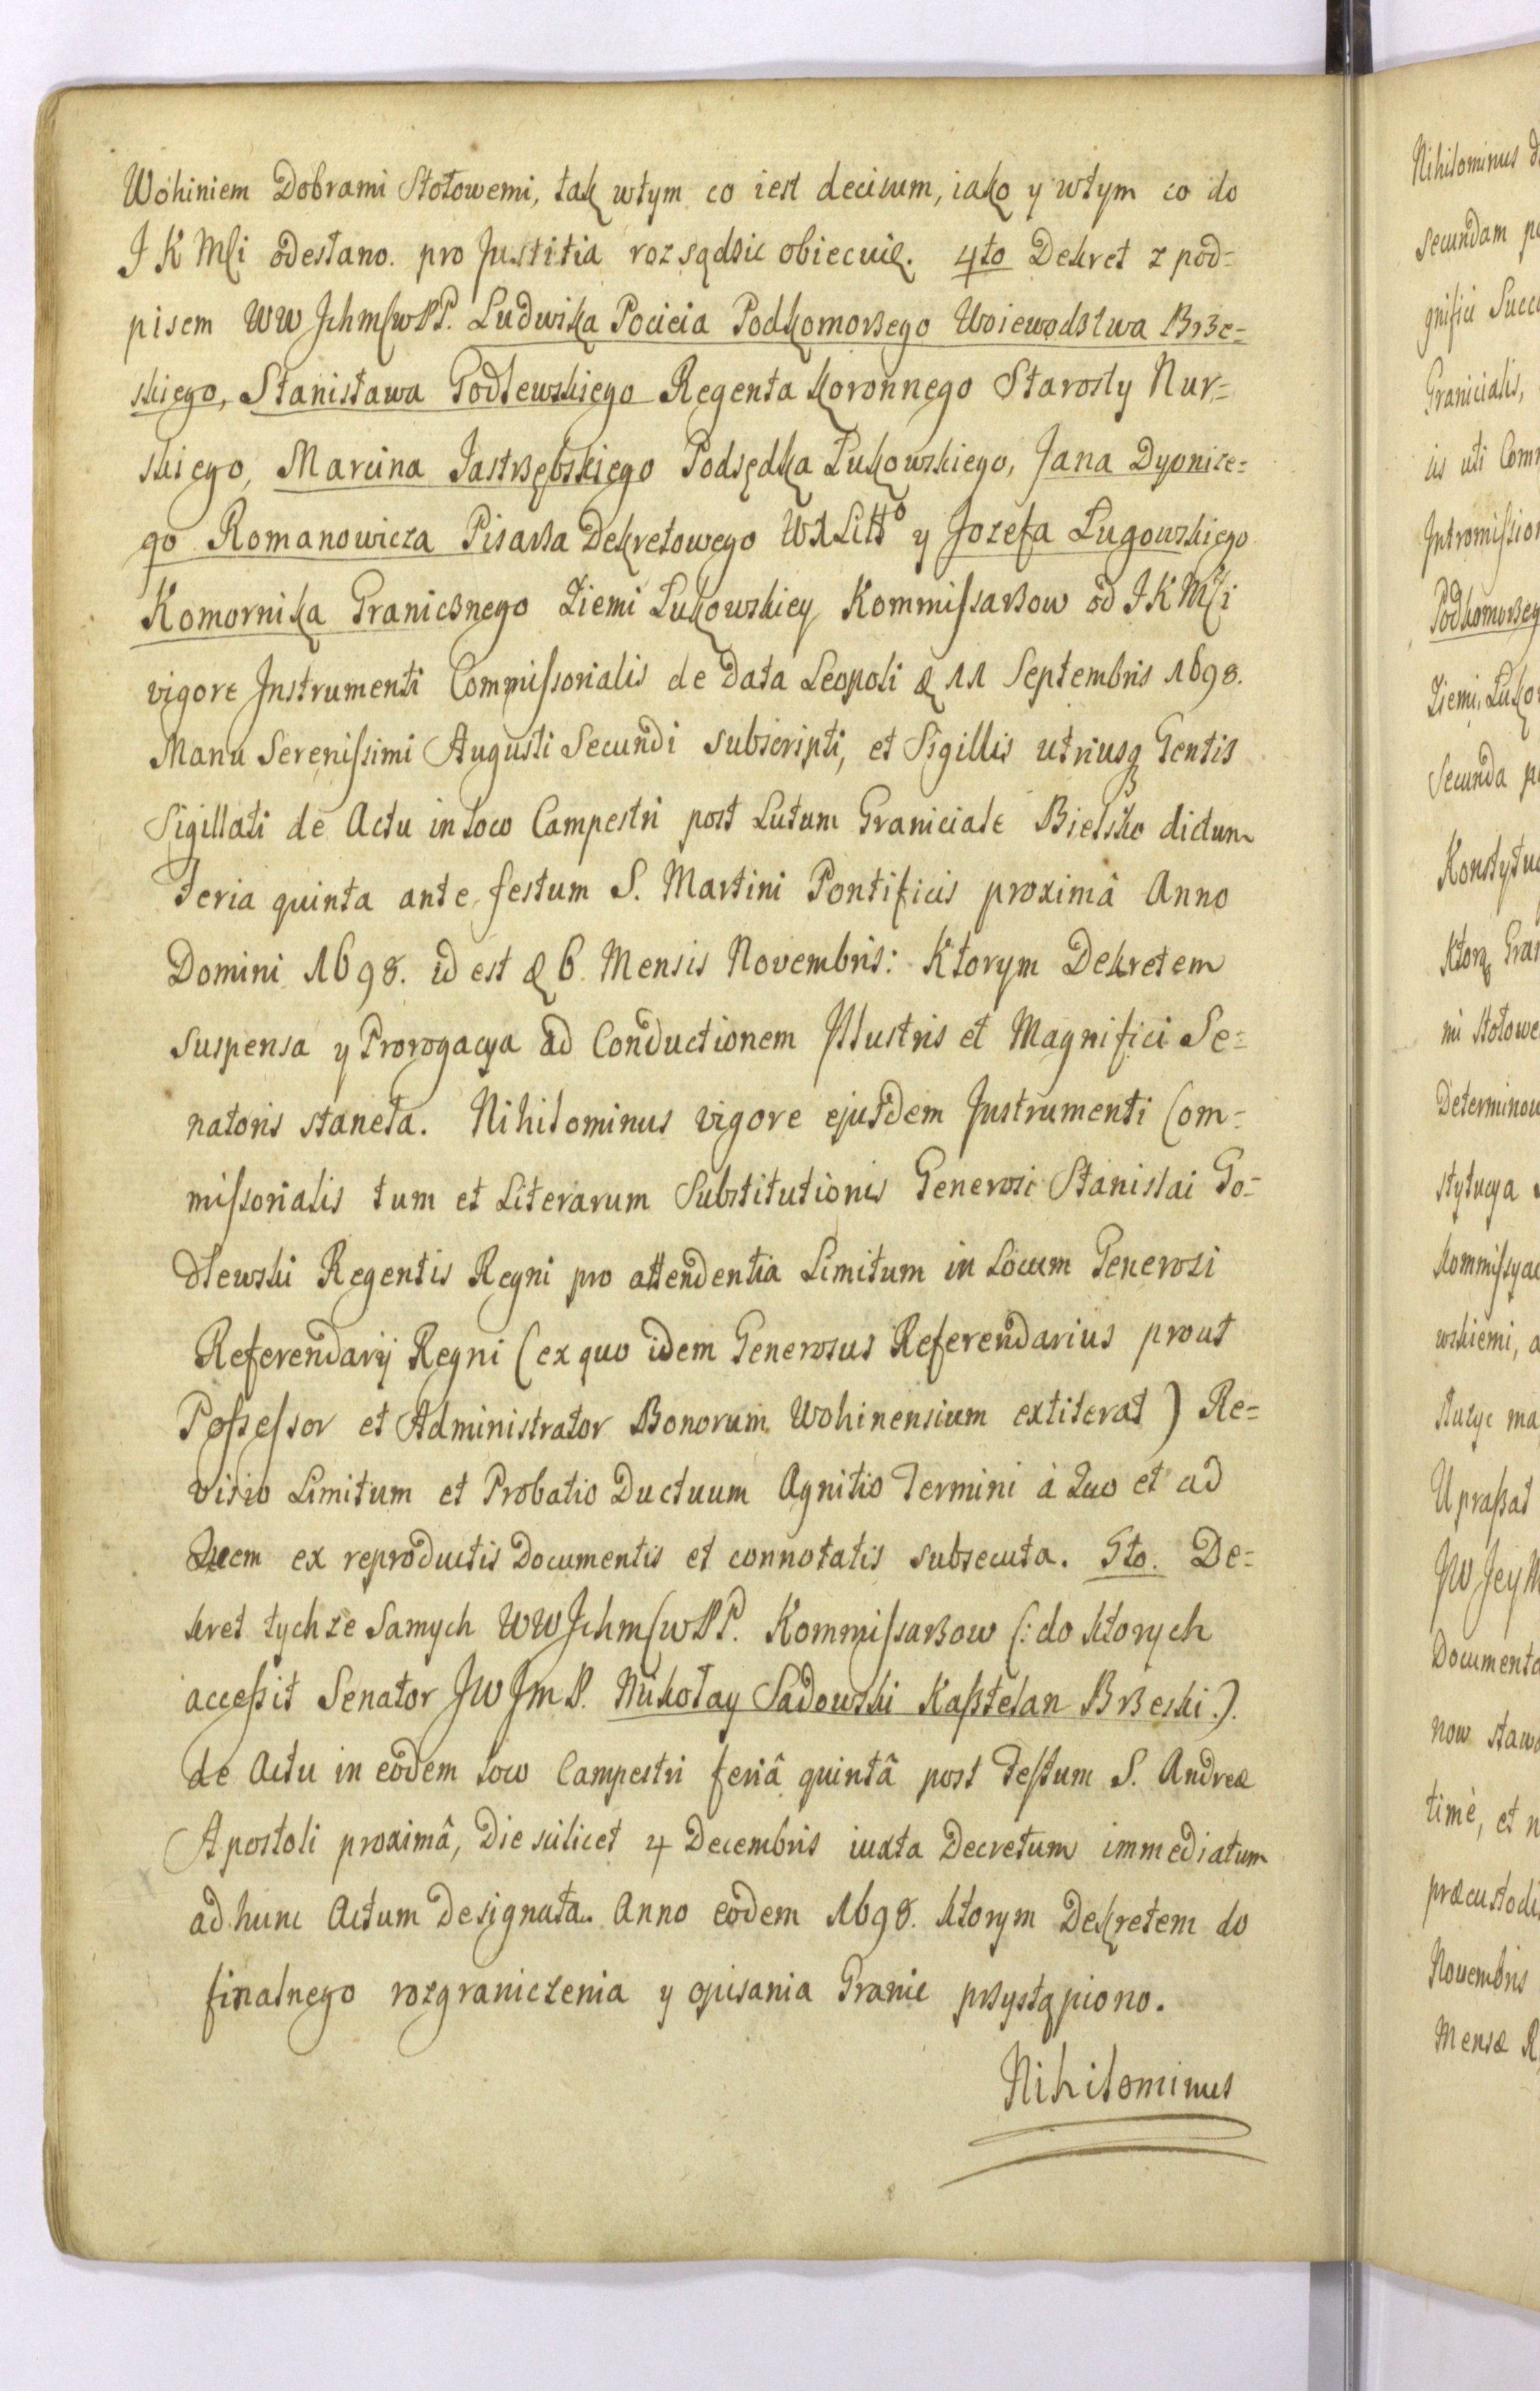 Wohiniem Dobrami Stołowemi, tak wtym co iest decisum, iako y wtym co do
J K Mści odesłano. pro Justitia rozsądzić obiecuię. 4to Dekret z pod=
pisem WW JchmſćwPP. Ludwika Pocieia Podkomorzego Woiewodztwa Brze=
skiego, Stanisława Godlewskiego Regenta Koronnego Starosty Nur=
skiego, Marcina Jastrzębskiego Podsędka Łukowskiego, Jana Dyonize=
go Romanowicza Pisarza Dekretowego WXLitto y Jozefa Ługowskiego
Komornika Granicznego Ziemi Łukowskiey Kommiſsarzow od J K Mści
vigore Instrumenti Commiſsorialis de Data Leopoli d 11 Septembris 1698.
Manu Sereniſsimi Augusti Secundi subscripti, et Sigillis utriusq Gentis
Sigillati de Actu in loco Campestri post Lutum Graniciale Bielsko dictum
Feria quinta ante festum S. Martini Pontificis proximâ Anno
Domini 1698. id est d 6 Mensis Novembris: Ktorym Dekretem
suspensa y Prorogacya ad Conductionem Jllustris et Magnifici Se=
natoris stanęła. Nihilominus vigore ejusdem Instrumenti Com=
miſsorialis tum et Literarum Substitutionis Generosi Stanislai Go=
dlewski Regentis Regni pro attendentia Limitum in Locum Generosi
Referendarij Regni (ex quo idem Generosus Referendarius prout
Poſseſsor et Administrator Bonorum Wohinensium extiterat) Re=
visio Limitum et Probatio Ductuum Agnitio Termini à Quo et ad
Quem ex reproductis Documentis et connotatis subsecuta. 5to. De=
kret tychze Samych WWJchmſćwPP. Kommiſsarzow (: do ktorych
acceſsit Senator JW JmP. Mikołay Sadowski Kasztelan Brzeski :).
de Actu in eodem loco Campestri feriâ quintâ post Feſtum S. Andreæ
Apostoli proximâ, Die scilicet 4 Decembris iuxta Decretum immediatum
ad hunc Actum Designata. Anno eodem 1698. ktorym Dekretem do
finalnego rozgraniczenia y opisania Granic przystąpiono.
Nihilominus